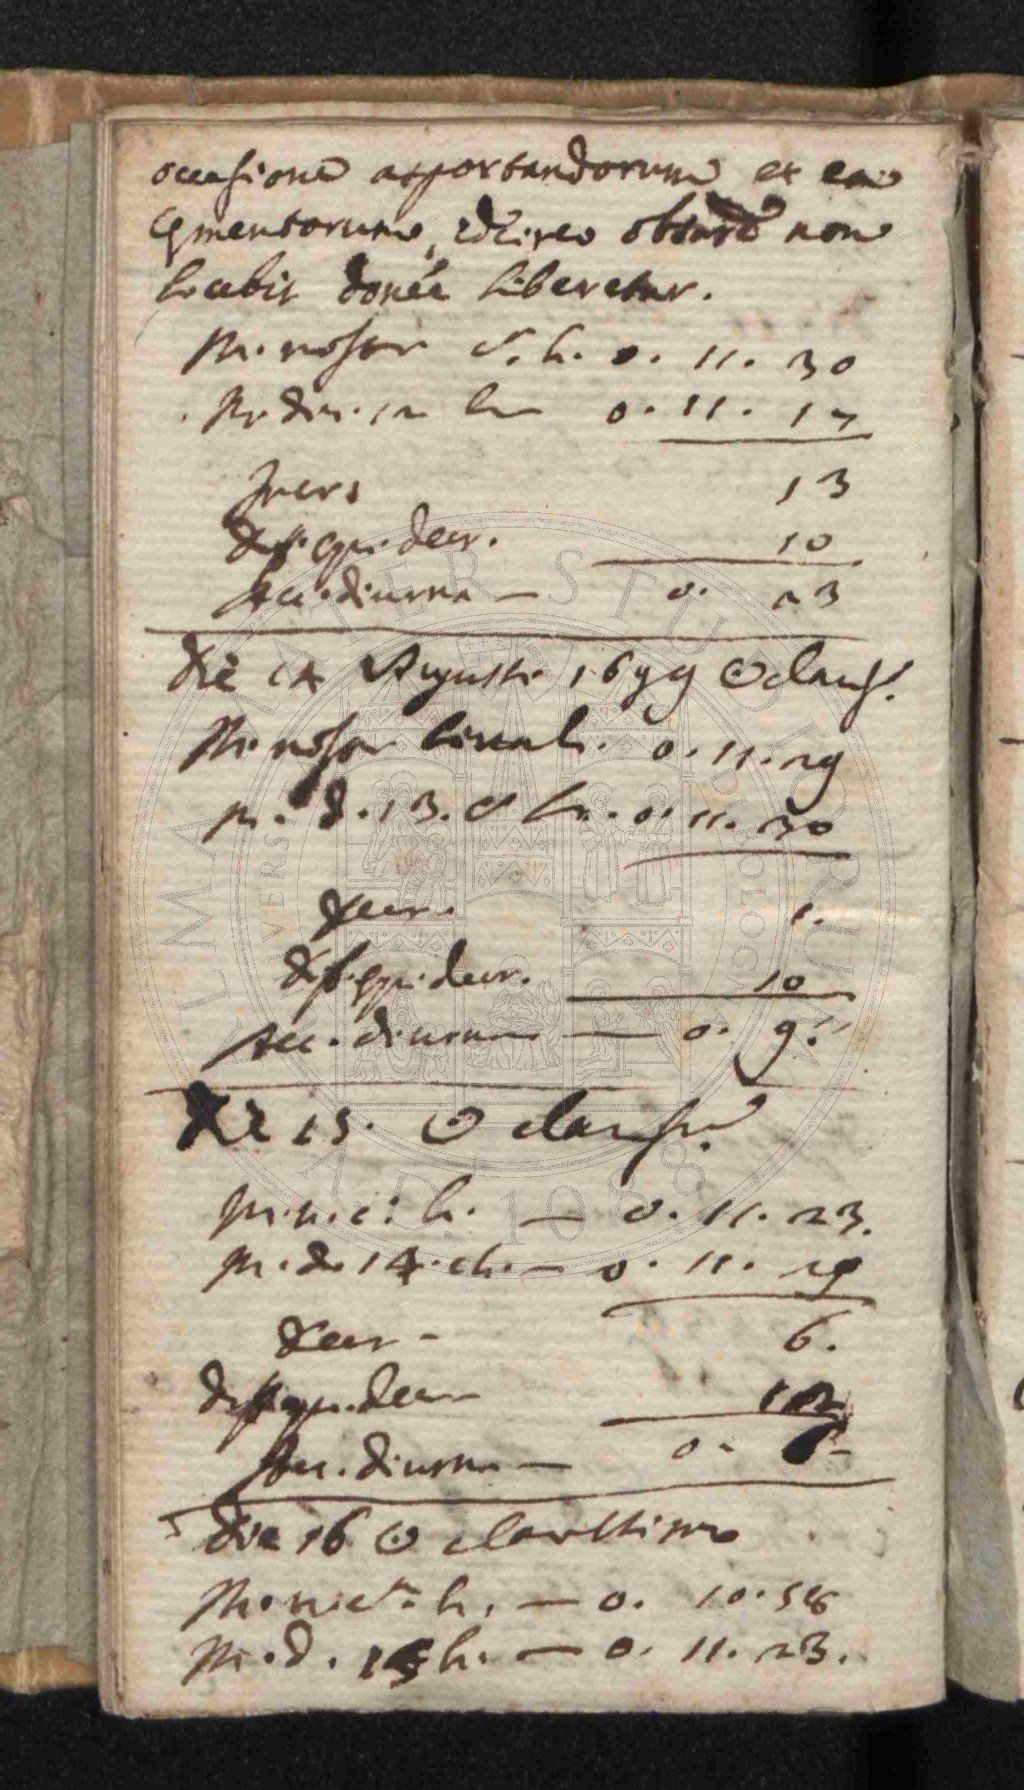 occasione asportandorum et cae
mentorum, idcirco observare non
licebit donec liberetur.
M. noster h. 0. 11. 30
M. die. 12 h 0. 11. 17
Incr. 13
Diff. equ. decr. 10
Acc. diurna — 0. 23
Die 14 Augusti 1699 ☉ clariss.
M. noster circa h. 0. 11. 29
M. d. 13. h. 0. 11. 30
Decr. 1.
Diff. equ. decr. 10
Acc. diurna — 0. 9.
Die 15. ☉ clariss.
h. — 0. 11. 23.
M. d. 14. h. — 0. 11. 29
Decr — 6.
Diff. equ. decr
Acc. diurna — 0.
Die 16 ☉ clarissimo
h. — 0. 10. 58
M. d. 15 h. — 0. 11. 23.
ALMA MATER STUDIORUM
A.D. 1088